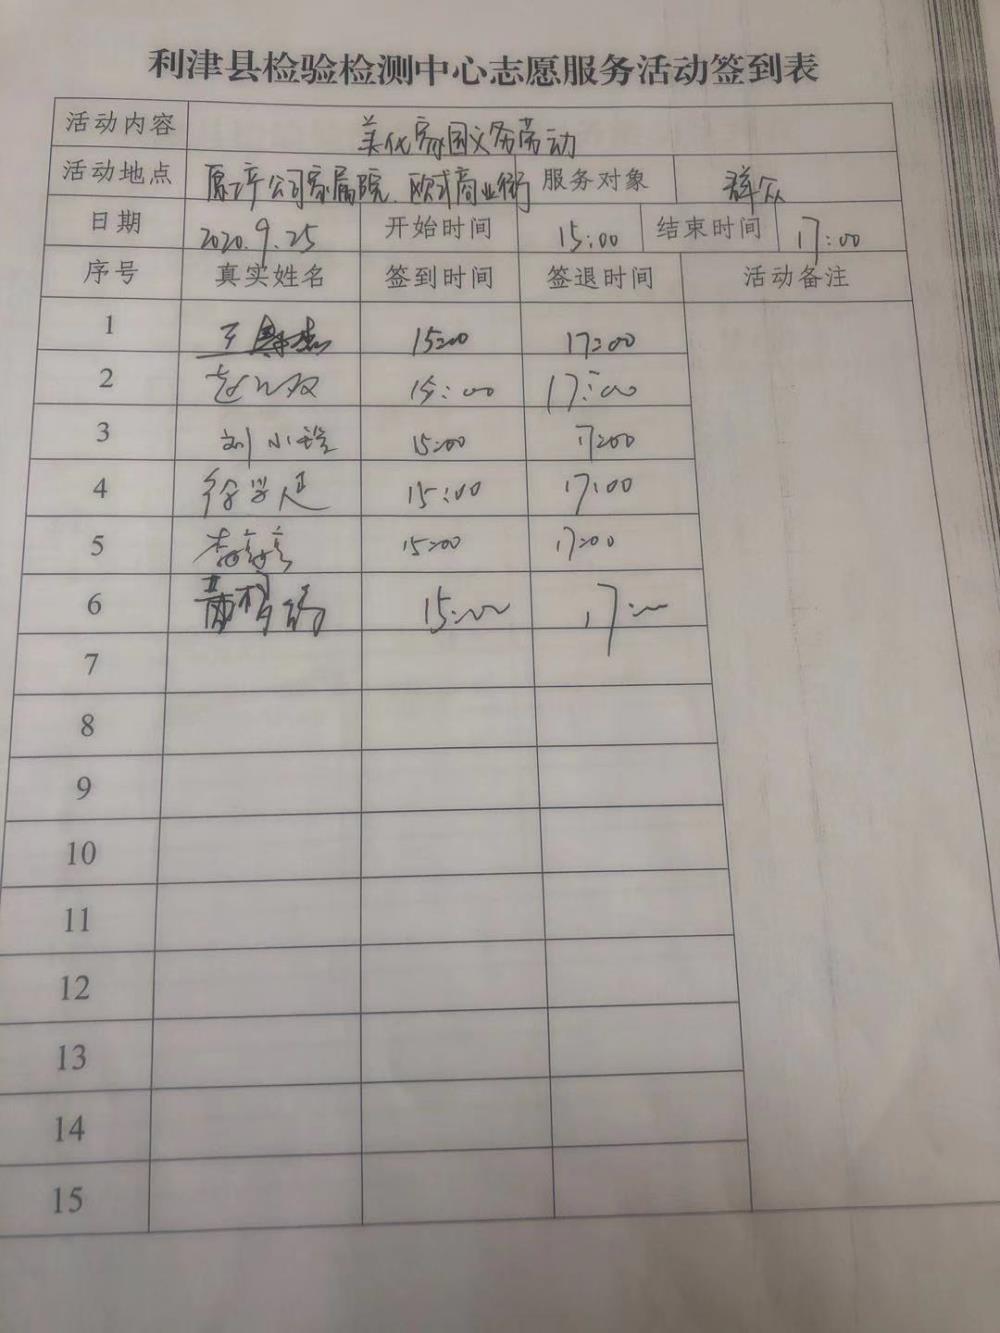 利津县检验检测中心志愿服务活动签到表
活动内容 美化家园义务劳动
活动地点 原 公司家属院、欧式商业街 服务对象 群众
日期 2020.9.25 开始时间 15:00 结束时间 17:00
序号 真实姓名 签到时间 签退时间 活动备注
1 王 15:00 17:00
2 赵 双 15:00 17:00
3 刘小 15:00 17:00
4 徐学 15:00 17:00
5 李 15:00 17:00
6 15:00 17:00
7
8
9
10
11
12
13
14
15